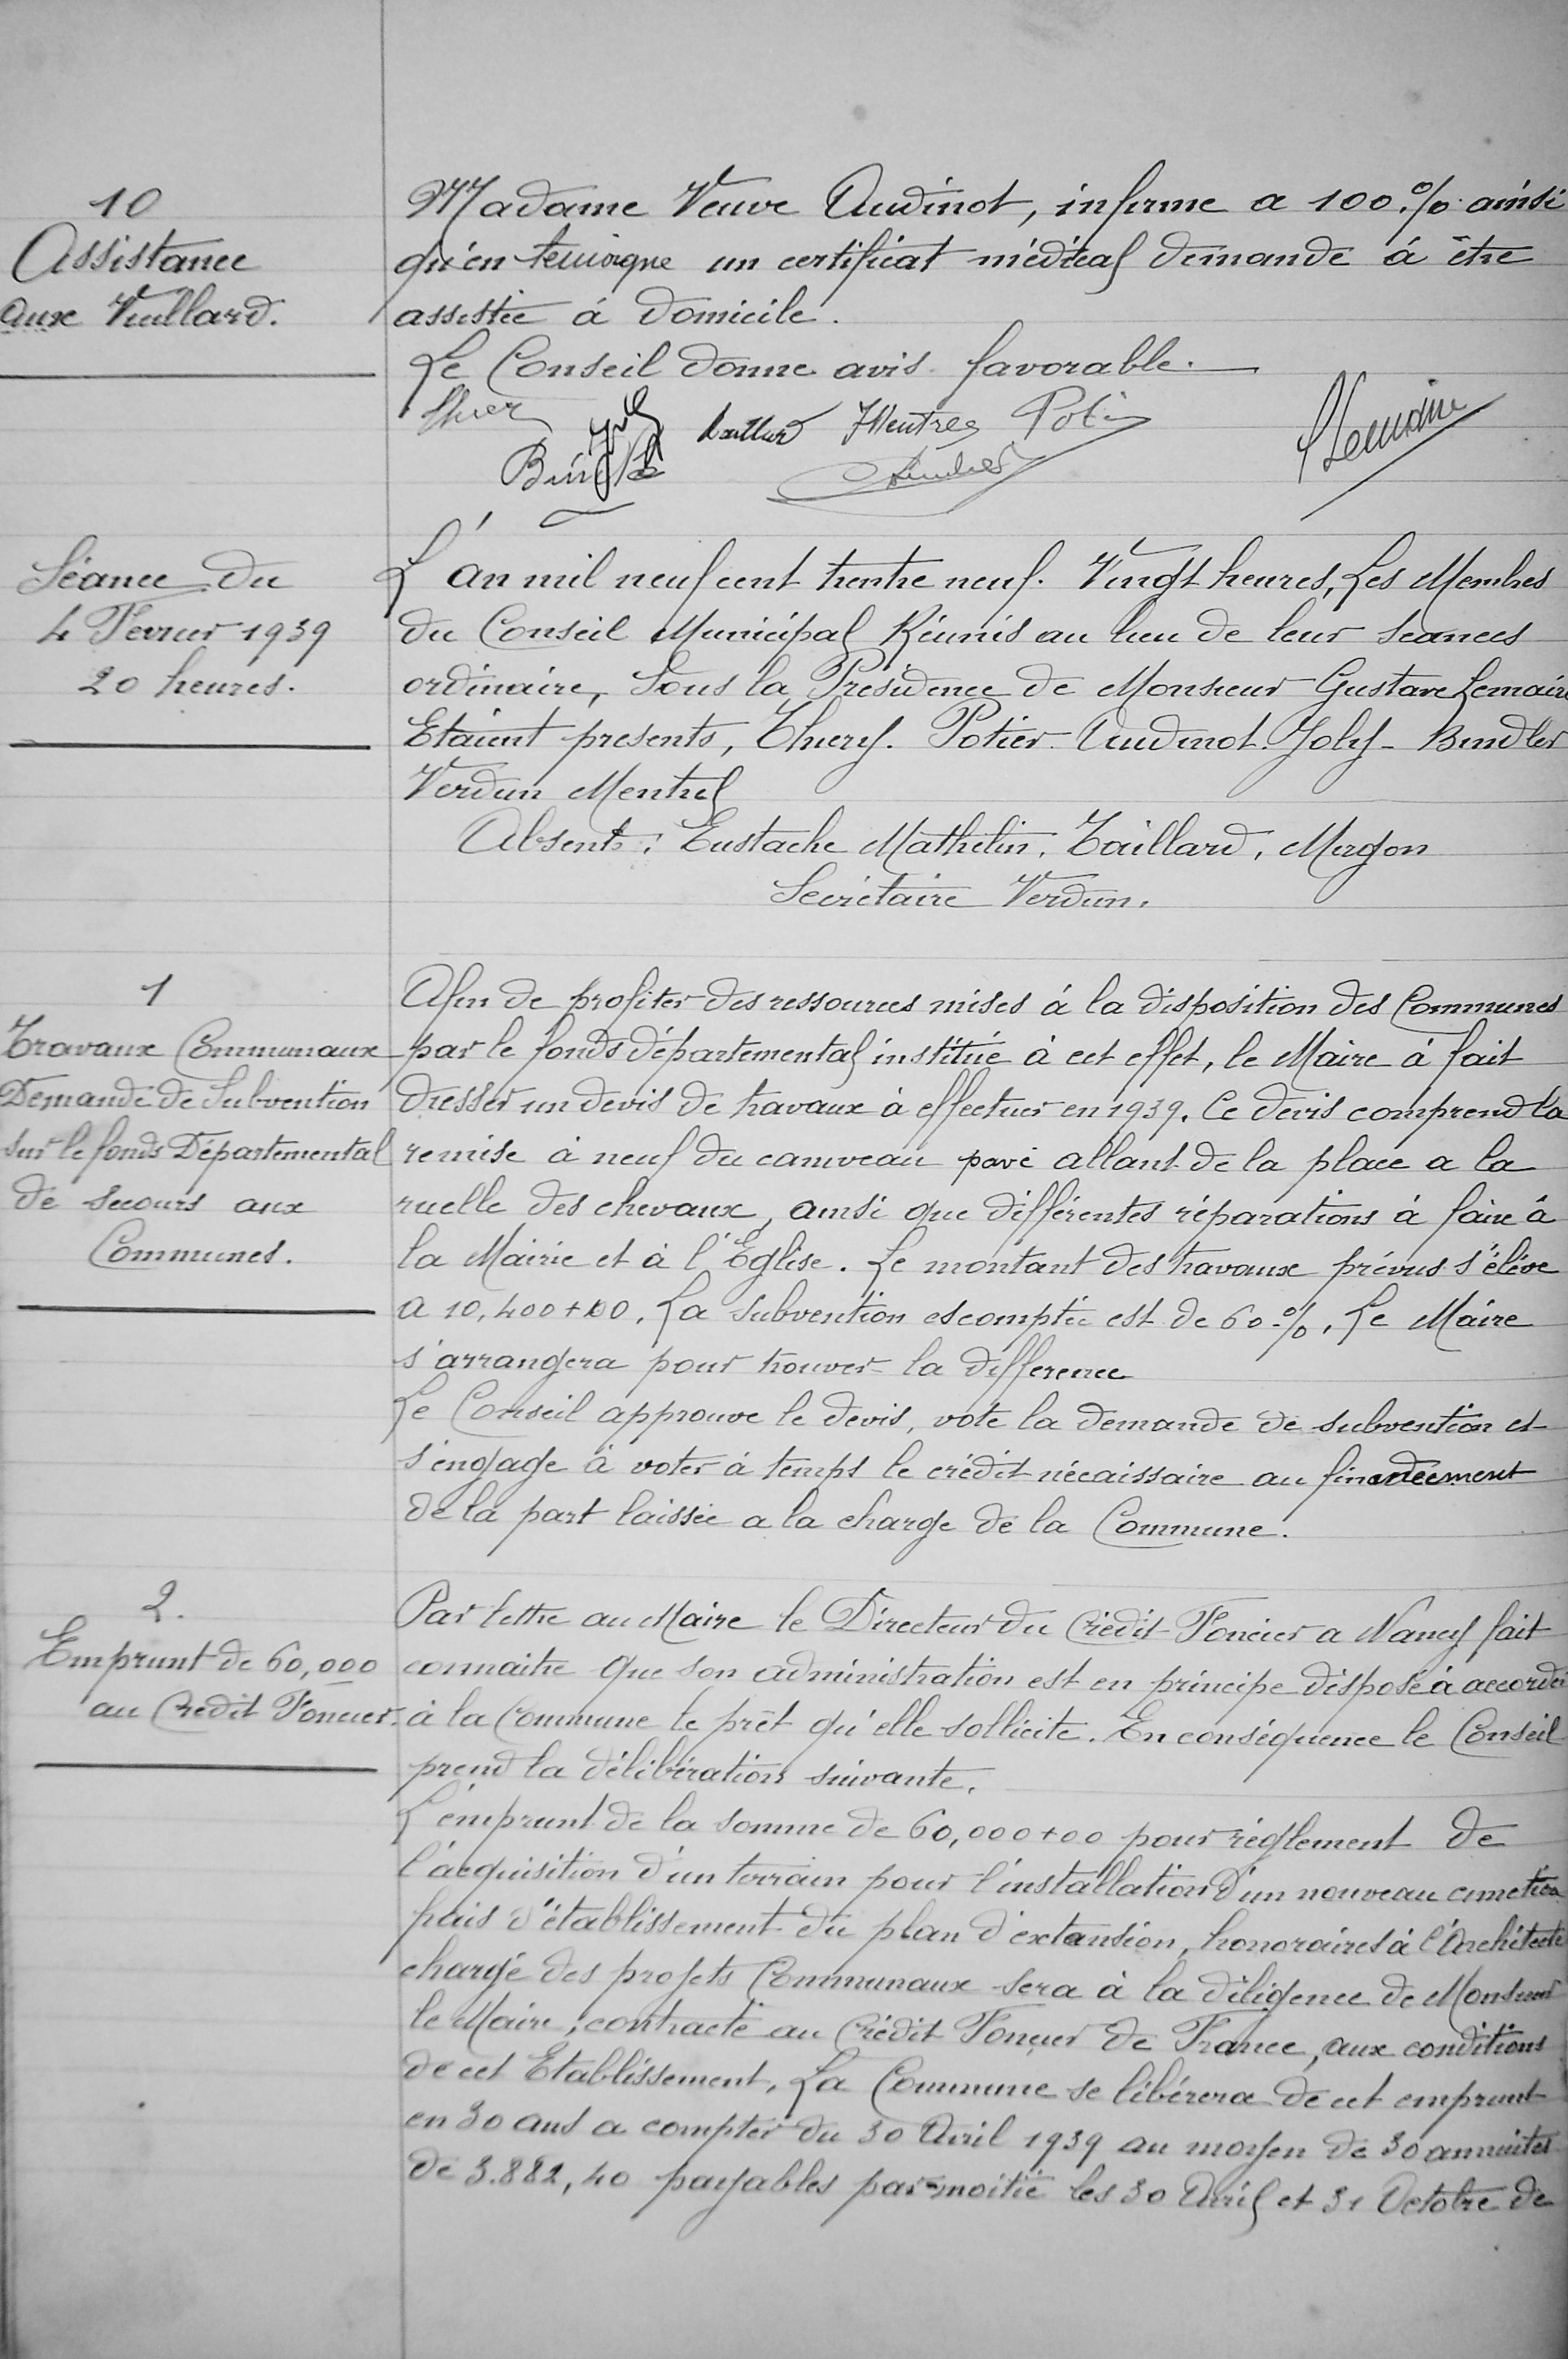 10
Assistance
aux Vieillard.
Madame Veuve Audinot, infirme a 100.% ainsi
qu'en temoigne un certificat médical demande á être
assistée á domicile.
Le Conseil donne avis favorable.
Potier
Lemaire
Séance du
4 Fevrier 1939
20 heures.
L'an mil neuf cent trentre neuf. Vingt heures, Les Membres
du Conseil Municipal Réunis au lieu de leur seances
ordinaire, Sous la Présidence de Monsieur Gustave Lemaire
Etaient presents, Thiery. Potier. Audinot. Joly - Bindler
Verdun Mentrel
Absents: Eustache Mathelin, Taillard, Murgon
Secrétaire Verdun.
1
Travaux Communaux
Demande de Subvention
sur le fonds Départemental
de secours aux
Communes.
Afin de profiter des ressources mises á la disposition des Communes
par le fonds départemental institué à cet effet, le Maire à fait
dresser un devis de travaux à effectuer en 1939. Ce devis comprend la
remise à neuf du camveau pavé allant de la place a la
ruelle des chevaux, ainsi que différentes réparations à faire à
la Mairie et à l'Eglise. Le montant des travaux prévus s'élève
a 10,400+00. La subvention escomptée est de 60.%. Le Maire
s'arrangera pour trouver la difference
Le Conseil approuve le devis, vote la demande de subvention et
s'engage à voter à temps le crédit nécaissaire au financement
de la part laissée a la charge de la Commune.
2.
Emprunt de 60,000
au Credit Foncier.
Par lettre au Maire le Directeur du Crédit Foncier a Nancy fait
connaitre que son administration est en principe disposé à accorder
à la Commune le prêt qu'elle sollicite. En conséquence le Conseil
prend la délibération suivante.
L'emprunt de la somme de 60,000+00 pour réglement de
l'acquisition d'un terrain pour l'installation d'un nouveau cimetière
frais d'établissement du plan d'extansion, honoraires à l'Architecte
chargé des projets Communaux sera à la diligence de Monsieur
le Maire, contracté au Crédit Foncier de France, aux conditions
de cet Etablissement. La Commune se libérera de cet emprunt
en 30 ans a compter du 30 Avril 1939 au moyen de 30 annuités
de 3.882,40 payables par moitié les 30 Avril et 31 Octobre de